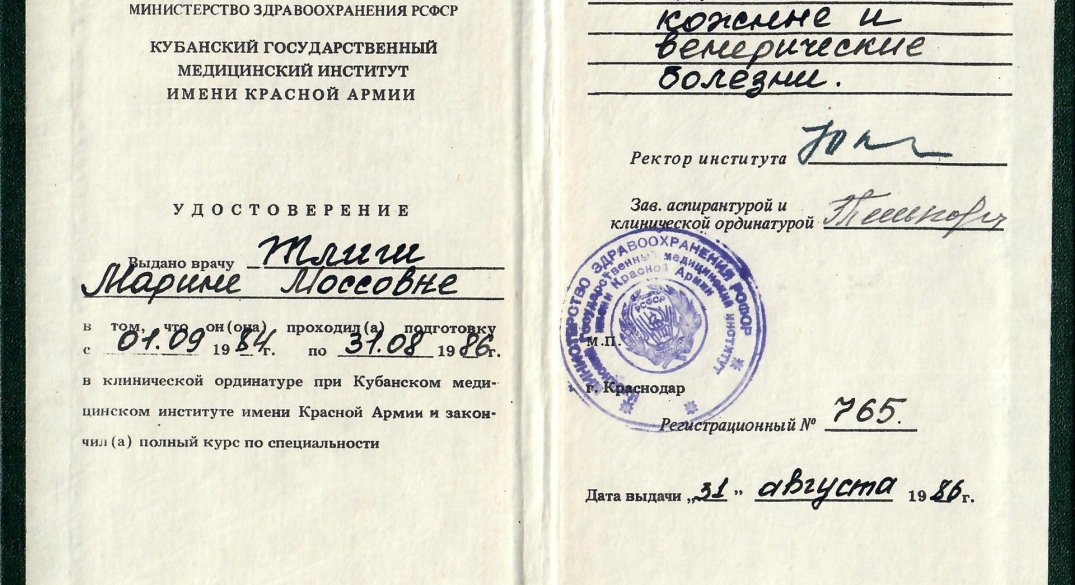 МИНИСТЕРСТВО ЗДРАВООХРАНЕНИЯ РСФСР
КУБАНСКИЙ ГОСУДАРСТВЕННЫЙ
МЕДИЦИНСКИЙ ИНСТИТУТ
ИМЕНИ КРАСНОЙ АРМИИ
УДОСТОВЕРЕНИЕ
Выдано врачу Тлиги
Марине Моссовне
в том, что он(она) проходил(а) подготовку
с 01.09 1984г. по 31.08 1986г.
в клинической ординатуре при Кубанском меди-
цинском институте имени Красной Армии и закон-
чил(а) полный курс по специальности
кожные и
венерические
болезни.
Ректор института
Зав. аспирантурой и
клинической ординатурой
МИНИСТЕРСТВО ЗДРАВООХРАНЕНИЯ РСФСР
государственный медицинский институт
имени Красной Армии
РСФСР
М.П.
г. Краснодар
Регистрационный № 765.
Дата выдачи „31" августа 1986г.